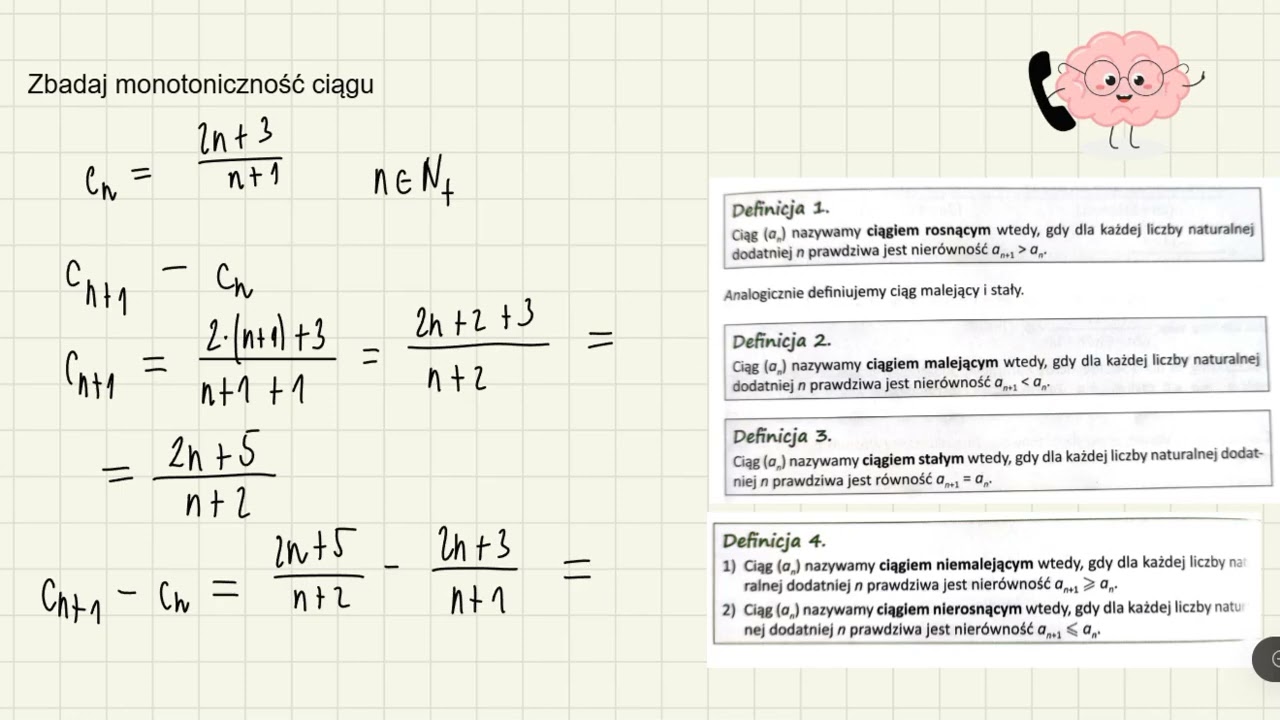 Zbadaj monotoniczność ciągu
cₙ = (2n + 3)/(n + 1)    n ∈ N₊
cₙ₊₁ − cₙ
cₙ₊₁ = (2·(n+1) + 3)/(n+1 + 1) = (2n + 2 + 3)/(n + 2) =
= (2n + 5)/(n + 2)
cₙ₊₁ − cₙ = (2n + 5)/(n + 2) - (2n + 3)/(n + 1) =
Definicja 1.
Ciąg (aₙ) nazywamy ciągiem rosnącym wtedy, gdy dla każdej liczby naturalnej
dodatniej n prawdziwa jest nierówność aₙ₊₁ > aₙ.
Analogicznie definiujemy ciąg malejący i stały.
Definicja 2.
Ciąg (aₙ) nazywamy ciągiem malejącym wtedy, gdy dla każdej liczby naturalnej
dodatniej n prawdziwa jest nierówność aₙ₊₁ < aₙ.
Definicja 3.
Ciąg (aₙ) nazywamy ciągiem stałym wtedy, gdy dla każdej liczby naturalnej dodat-
niej n prawdziwa jest równość aₙ₊₁ = aₙ.
Definicja 4.
1) Ciąg (aₙ) nazywamy ciągiem niemalejącym wtedy, gdy dla każdej liczby nat
ralnej dodatniej n prawdziwa jest nierówność aₙ₊₁ ⩾ aₙ.
2) Ciąg (aₙ) nazywamy ciągiem nierosnącym wtedy, gdy dla każdej liczby natur
nej dodatniej n prawdziwa jest nierówność aₙ₊₁ ⩽ aₙ.